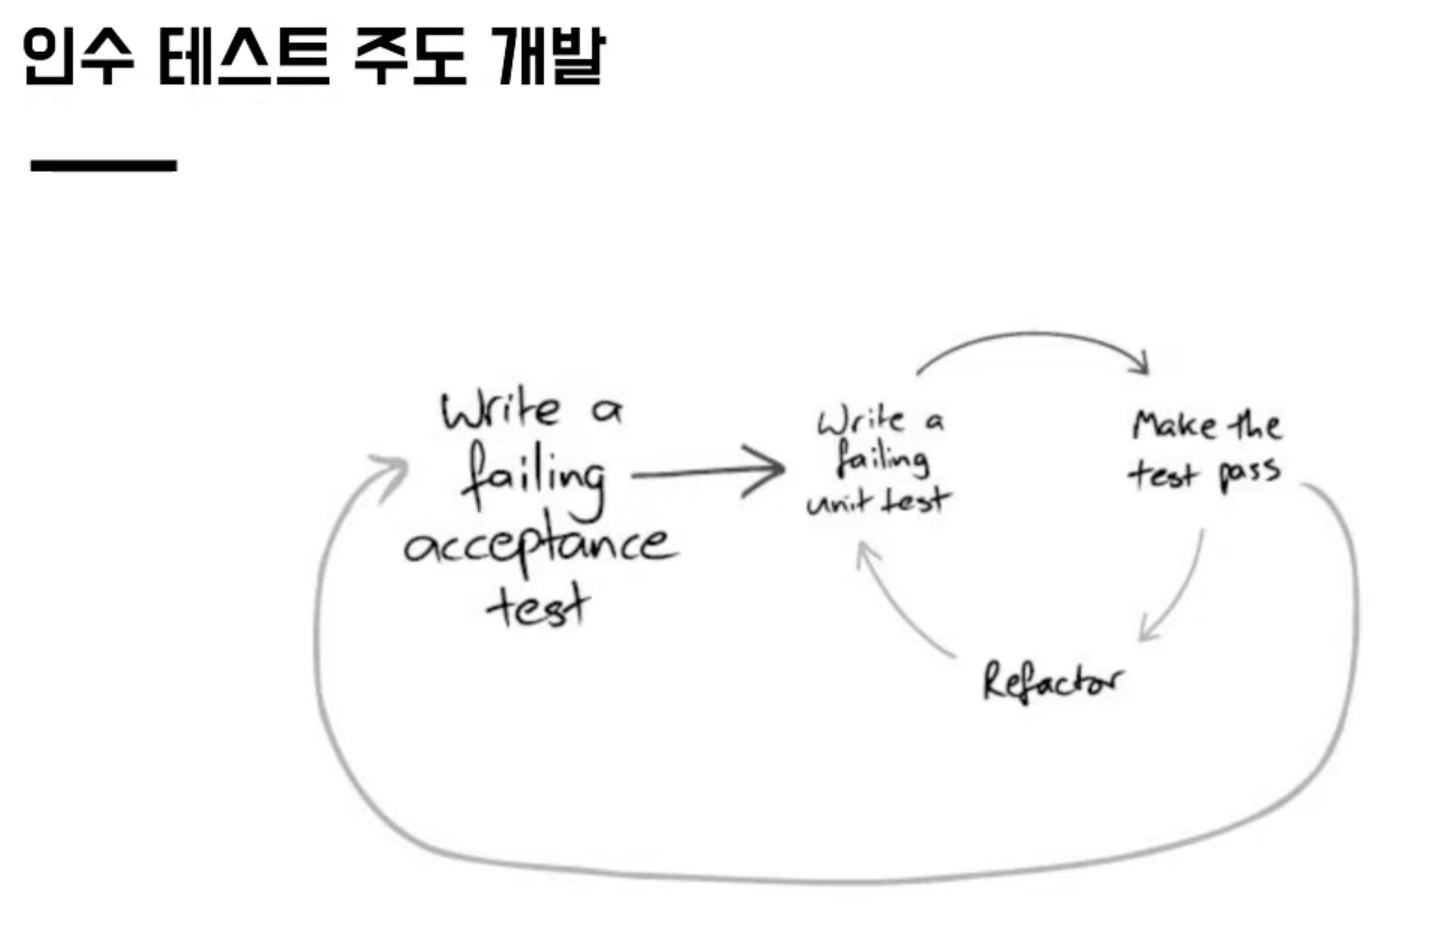 인수 테스트 주도 개발
Write a
failing
acceptance
test
Write a
failing
unit test
Make the
test pass
Refactor